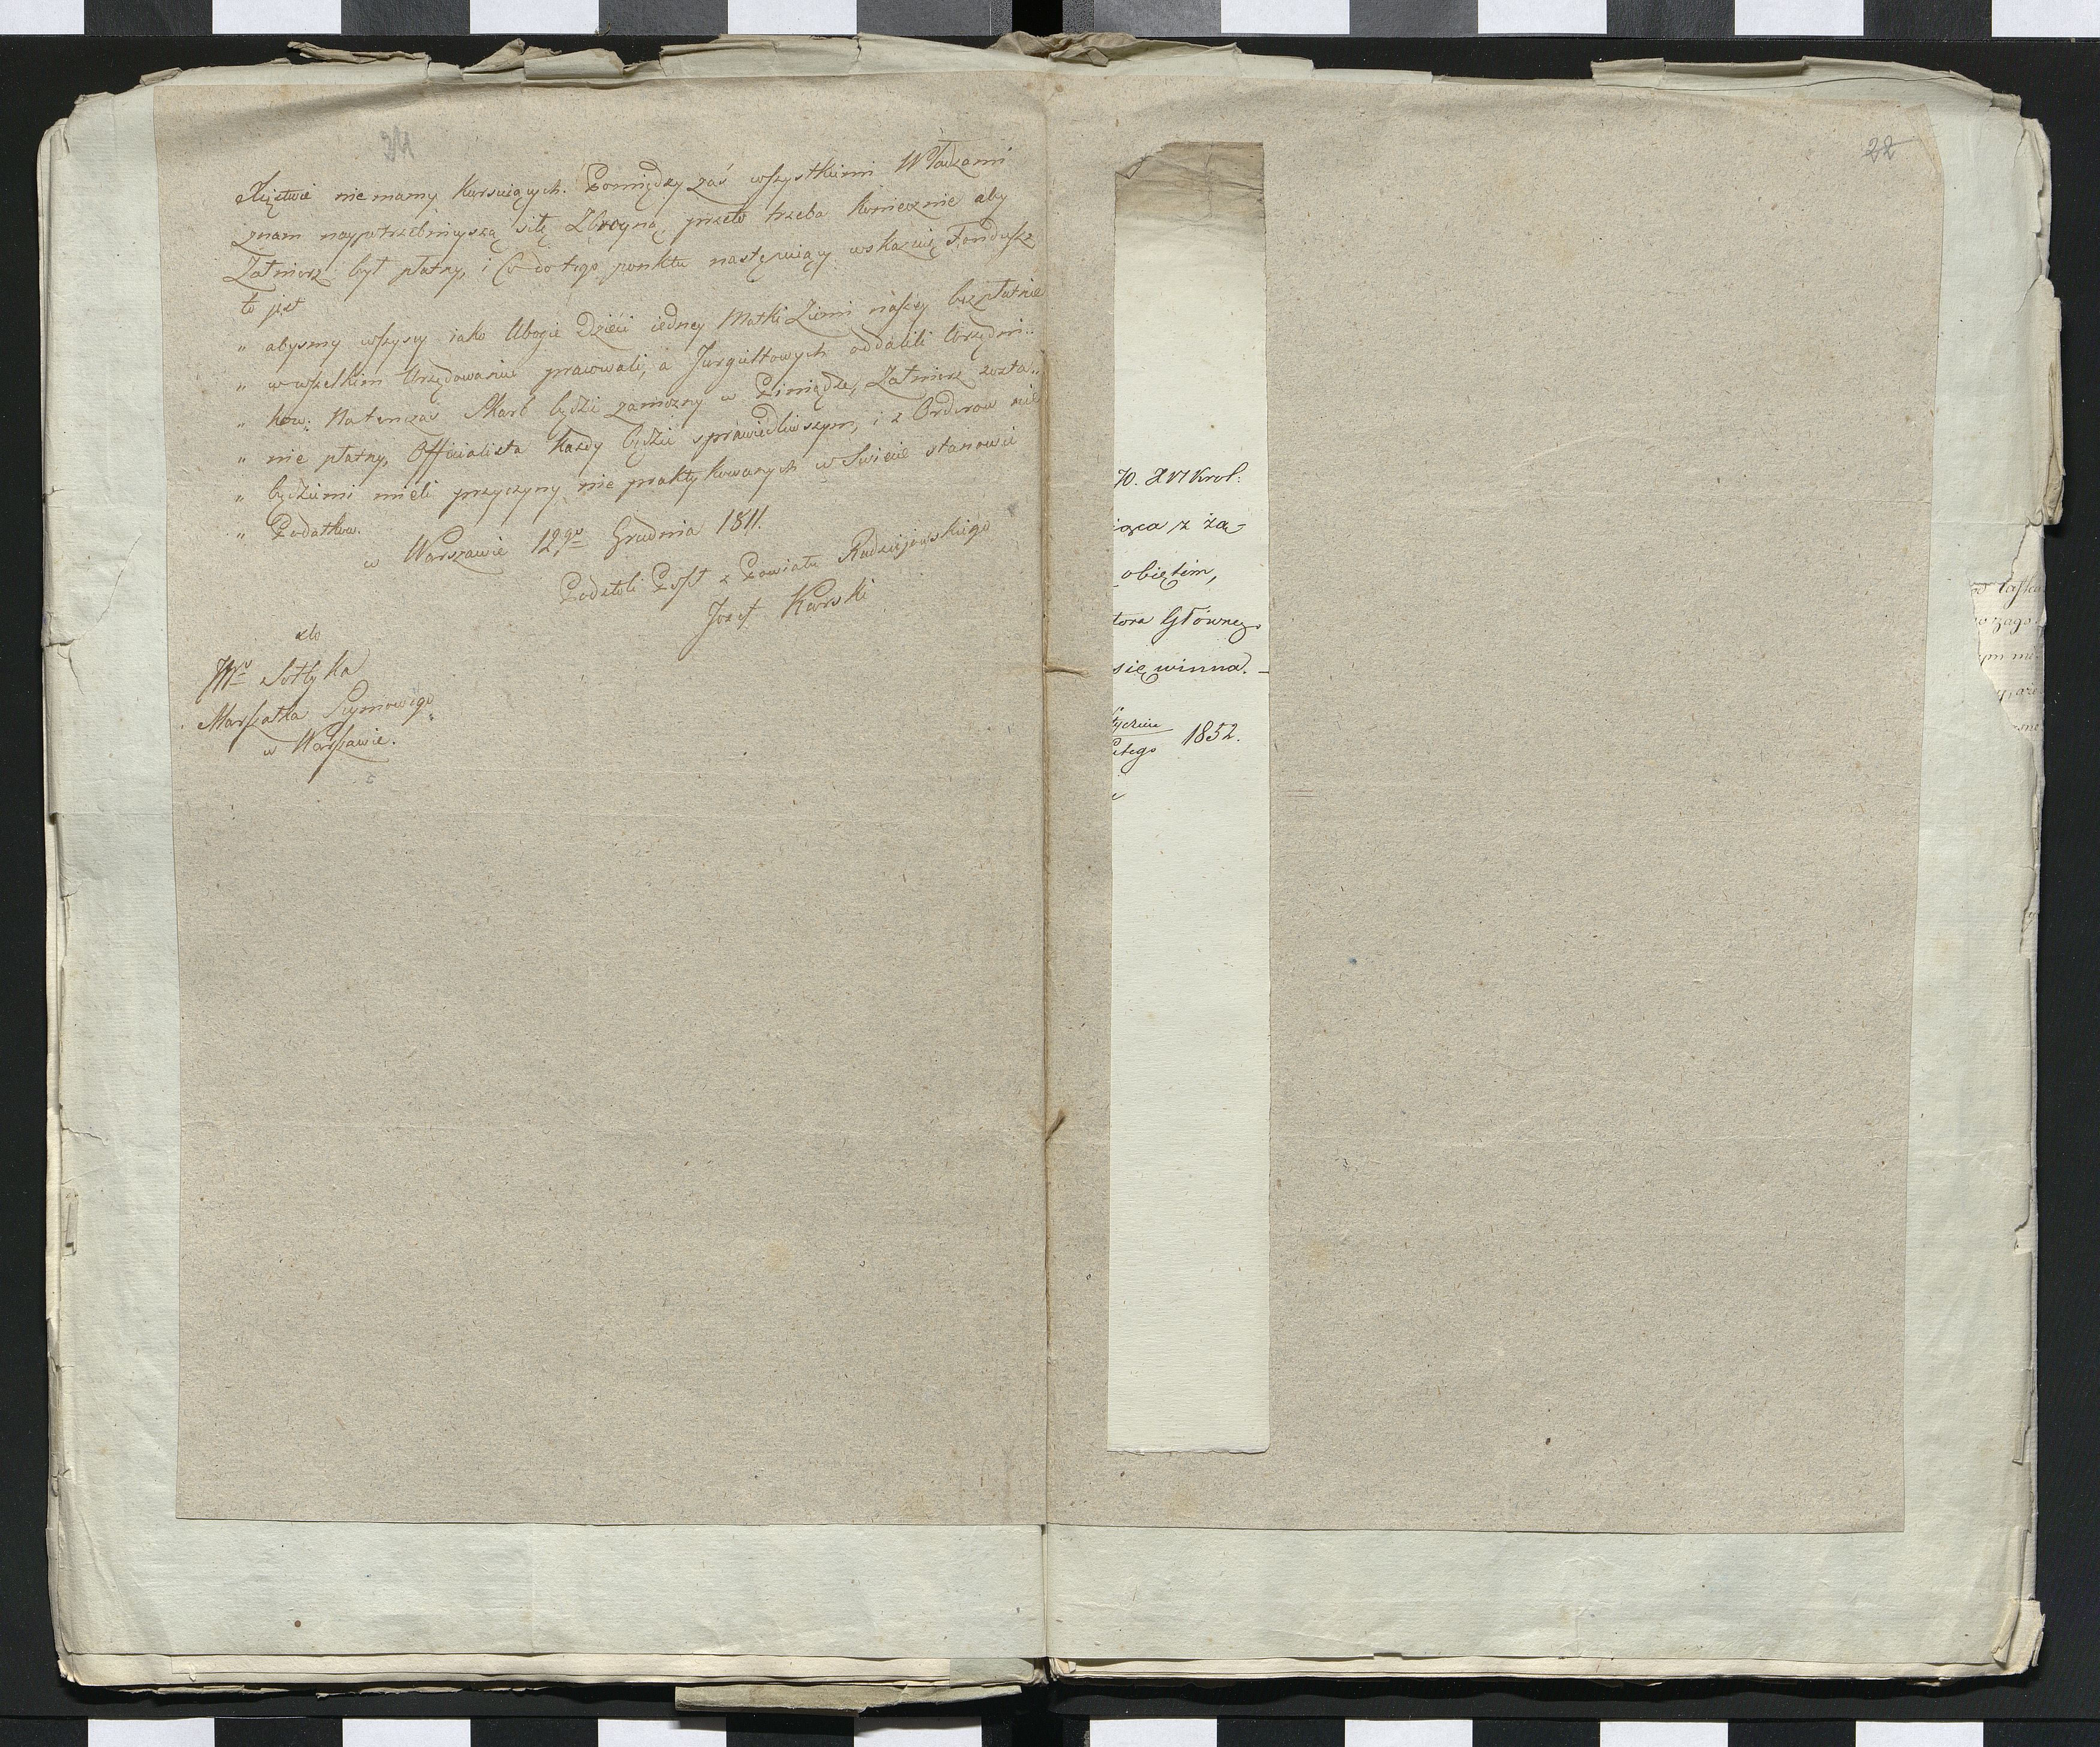 Xięztwie nie mamy kursuiących. Pomiędzy zaś wszystkiemi Władzami
znam naypotrzebnieyszą siłę Zbroyną, przeto trzeba koniecznie aby
Żołnierz był płatny, i Co do tego punktu następuiący wskazuię Fondusz
to jest
" abysmy wszyscy iako Ubogie Dzieci iedney Matki Ziemi naszey bezpłatnie
" w wszelkim Urzędowaniu pracowali, a Jurgieltowych oddalili Urzędni-
" kow. Natenczas Skarb będzie zamożny w Pieniądze, Żołnierz zosta-
" nie płatny, Officialista Każdy będzie sprawiedliwszym, i z Orderow nie
" będziemi mieli przyczyny nie praktykowanych w Swiecie stanowić
" Podatkow.
w Warszawie 12go Grudnia 1811.
Podstoli Posł z Powiatu Radziejowskiego
Jozef Karski
do
JWo Sołtyka
Marszałka Seymowego
w Warszawie.
22
70. XVI Krol:
iąca z za-
obiętem,
tora Głównego
się winna. —
Stycznia
Lutego 1852.